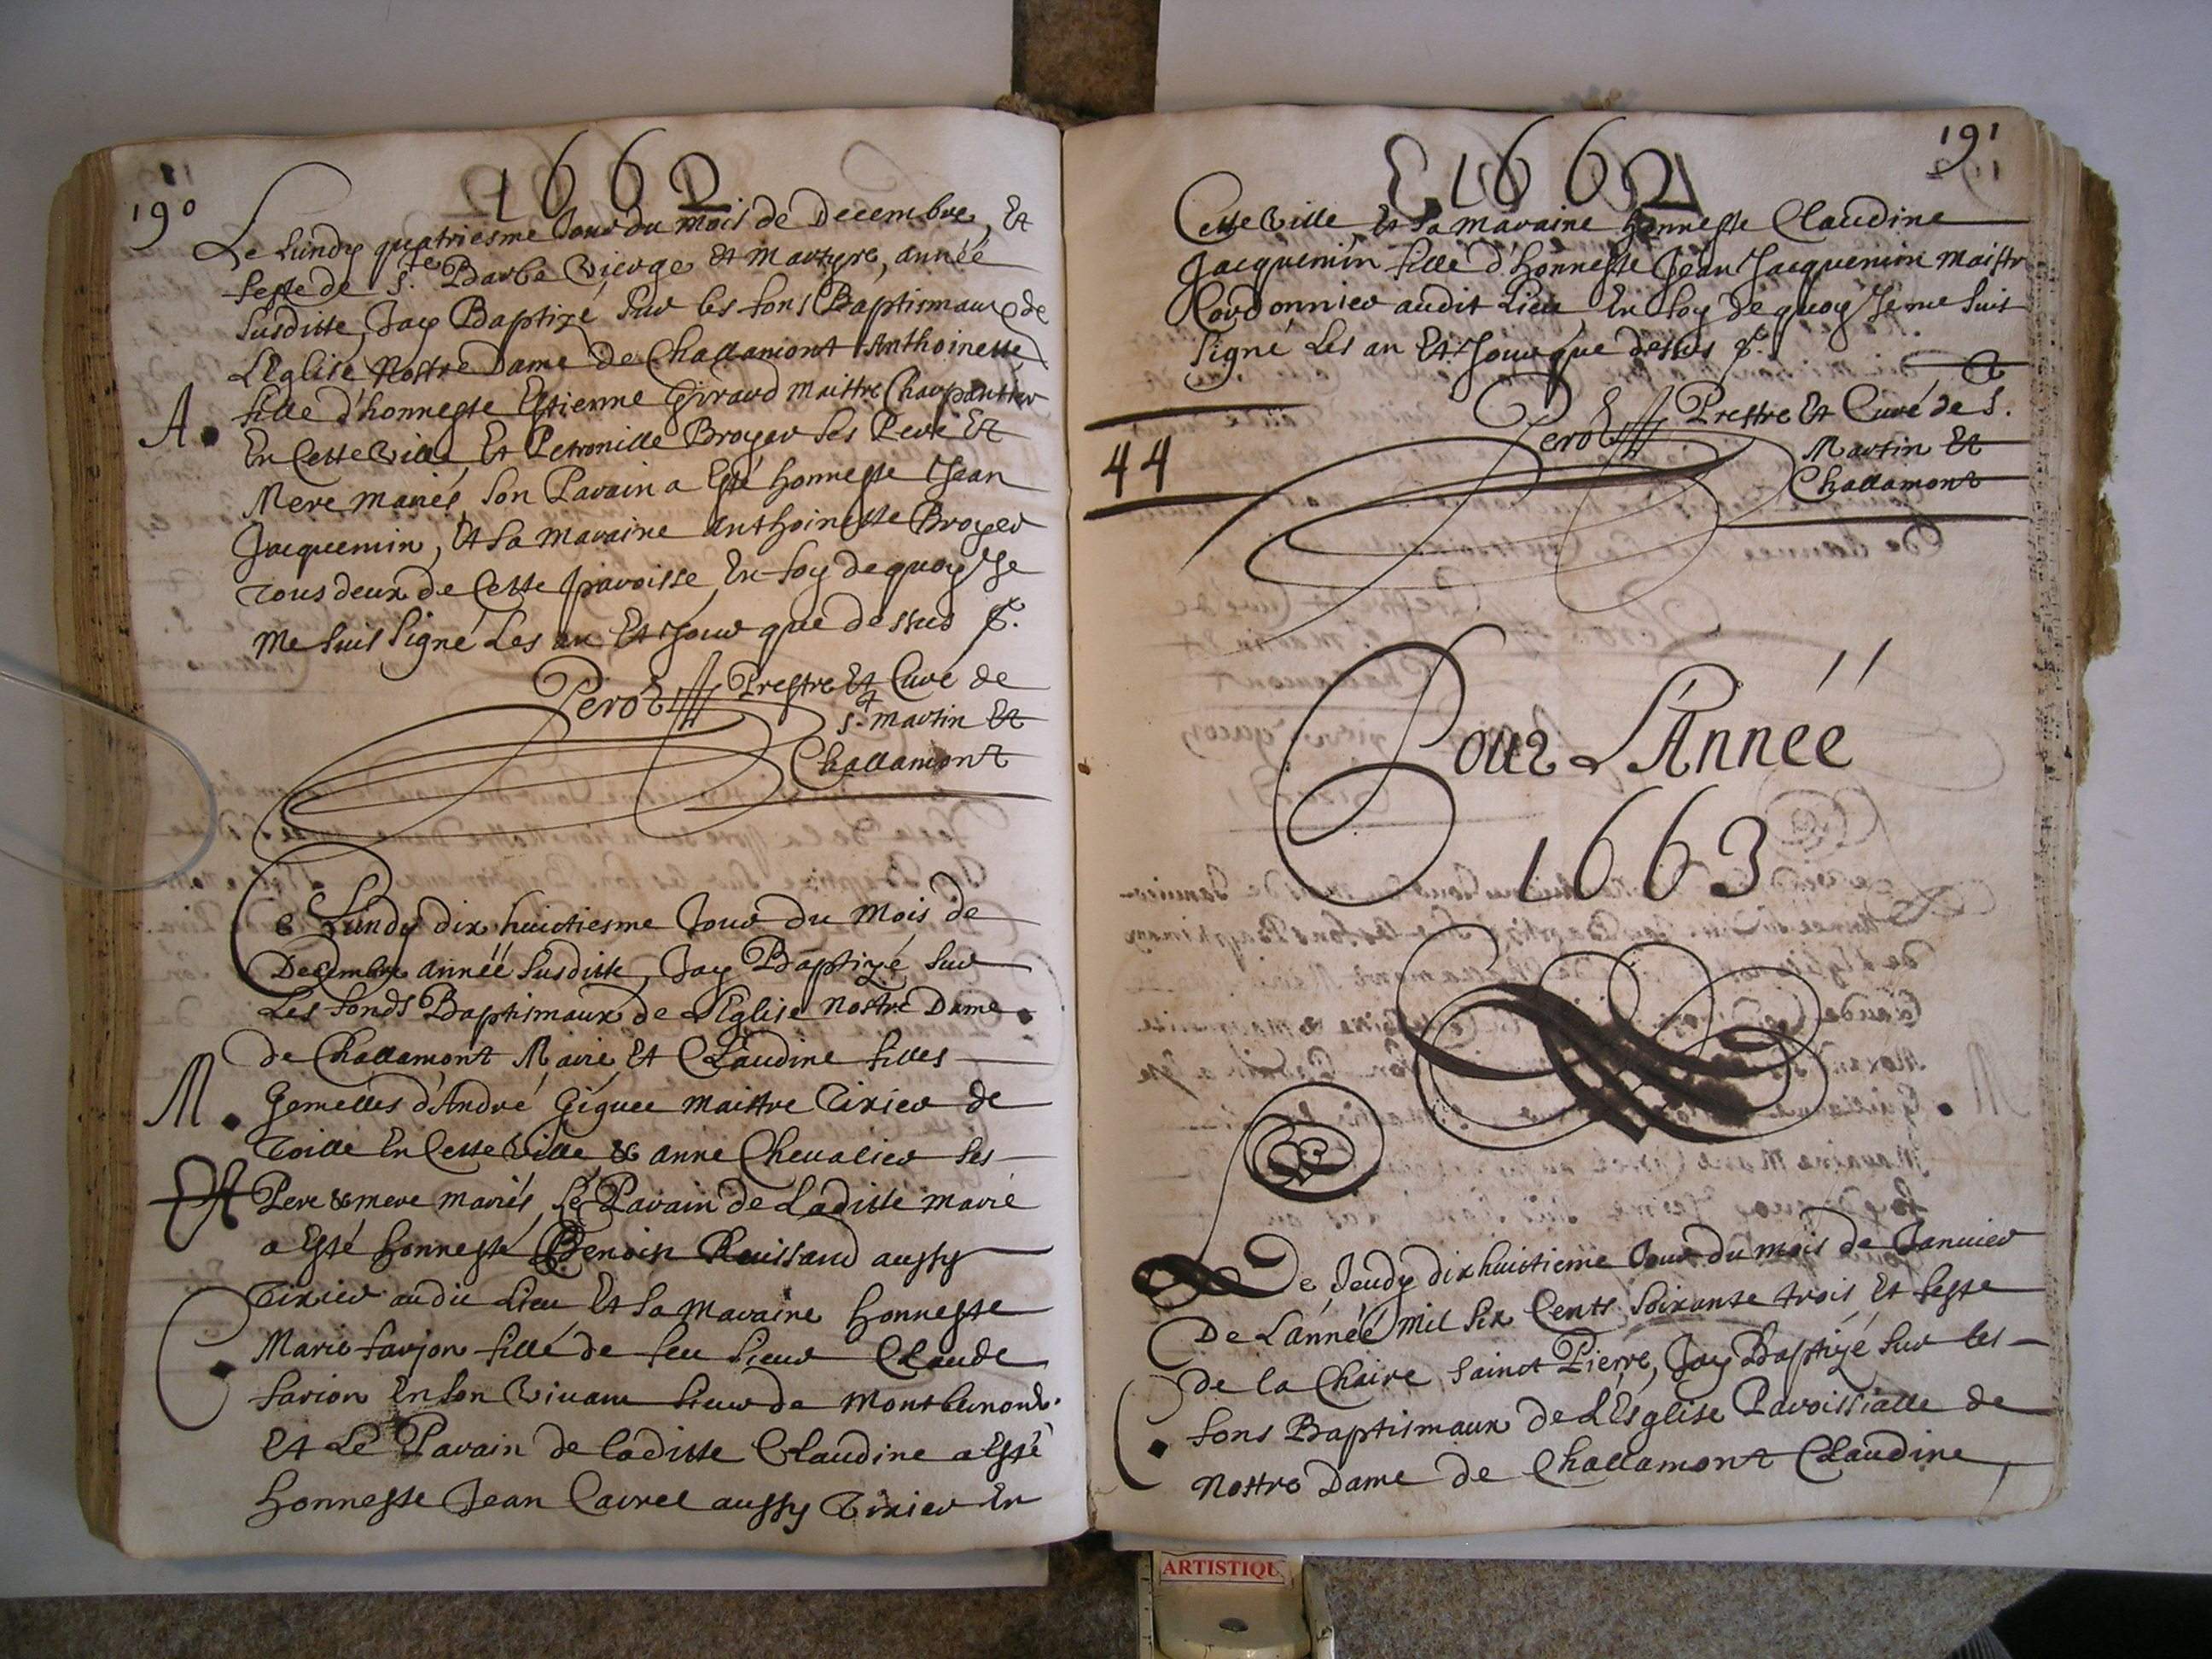 190
1662
Le Lundy quatriesme Jour du mois de Decembre, Et
feste de S.te Barbe Vierge Et Martyre, année
susditte, Jay Baptizé sur les fons Baptismaux de
L'Eglise Nostre Dame de Challamont Anthoinette
A.
fille d'honneste Estienne Girard Maittre Charpantier
En Cette Ville, Et Petronille Broyer ses Pere Et
Mere mariés, son Parain a Esté honneste Jean
Jacquemin, Et sa maraine Anthoinette Broyer
tous deux de Cette paroisse, En foy de quoy Je
me suis signé Les an Et Jour que dessus
Perot Prestre Et Curé de
S.t Martin Et
Challamont
Le Lundy dix huictiesme Jour du Mois de
Decembre année susditte, Jay Baptizé sur
Les fonds Baptismaux de L'Eglise Nostre Dame
de Challamont Marie Et Claudine filles
M.
Gemelles d'André Giguet maittre Tixier de
toille En Cette Ville, & anne Cheualier ses
Et
Pere & mere mariés, Le Parain de Laditte marie
a Esté honneste Benoist Ruissard aussy
Tixier audit Lieu Et sa maraine honneste
C.
Marie farjon fille de feu sieur Claude
farion En son Viuant sieur de
Et Le Parain de laditte Claudine a Esté
honneste Jean Cairel aussy Tixier En
191
1662
Cette Ville Et sa maraine honneste Claudine
Jacquemin fille d'honneste Jean Jacquemin maistre
Cordonnier audit Lieu En foy de quoy Je me suis
signé Les an Et Jour que dessus
Perot Prestre Et Curé de S.
Martin Et
Challamont
44
Pour L'Année
1663
Le Jeudy dix huictieme Jour du mois de Januier
De L'année mil six Cents soixante trois Et feste
de la Chaire sainct Pierre, Jay Baptizé sur les
C.
fons Baptismaux de L'Esglise Paroissialle de
Nostre Dame de Challamont Claudine,
ARTISTIQU